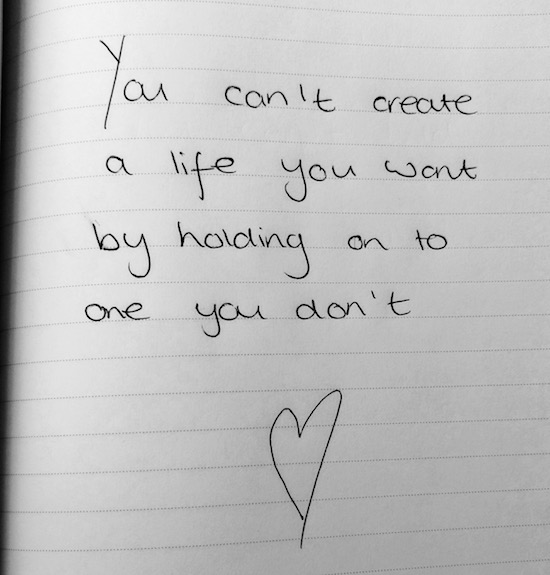 You can't create
a life you want
by holding on to
one you don't